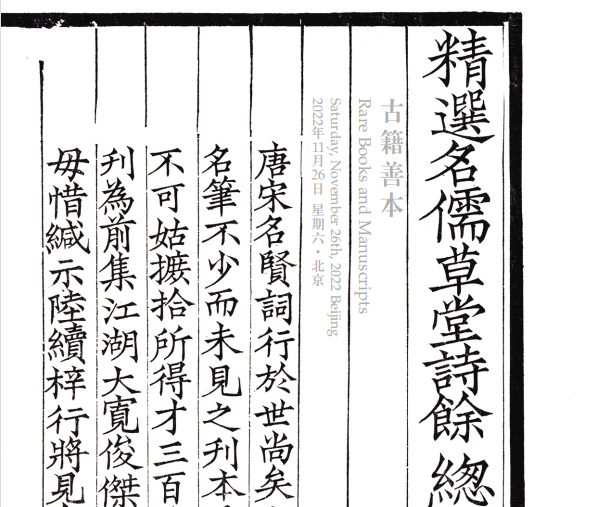 精選名儒草堂詩餘總
古籍善本
Rare Books and Manuscripts
Saturday, November 26th, 2022 Beijing
2022年11月26日 星期六·北京
唐宋名賢詞行於世尚矣
名筆不少而未見之刋本
不可姑摭拾所得才三百
刋為前集江湖大寬俊傑
毋惜緘示陸續梓行將見